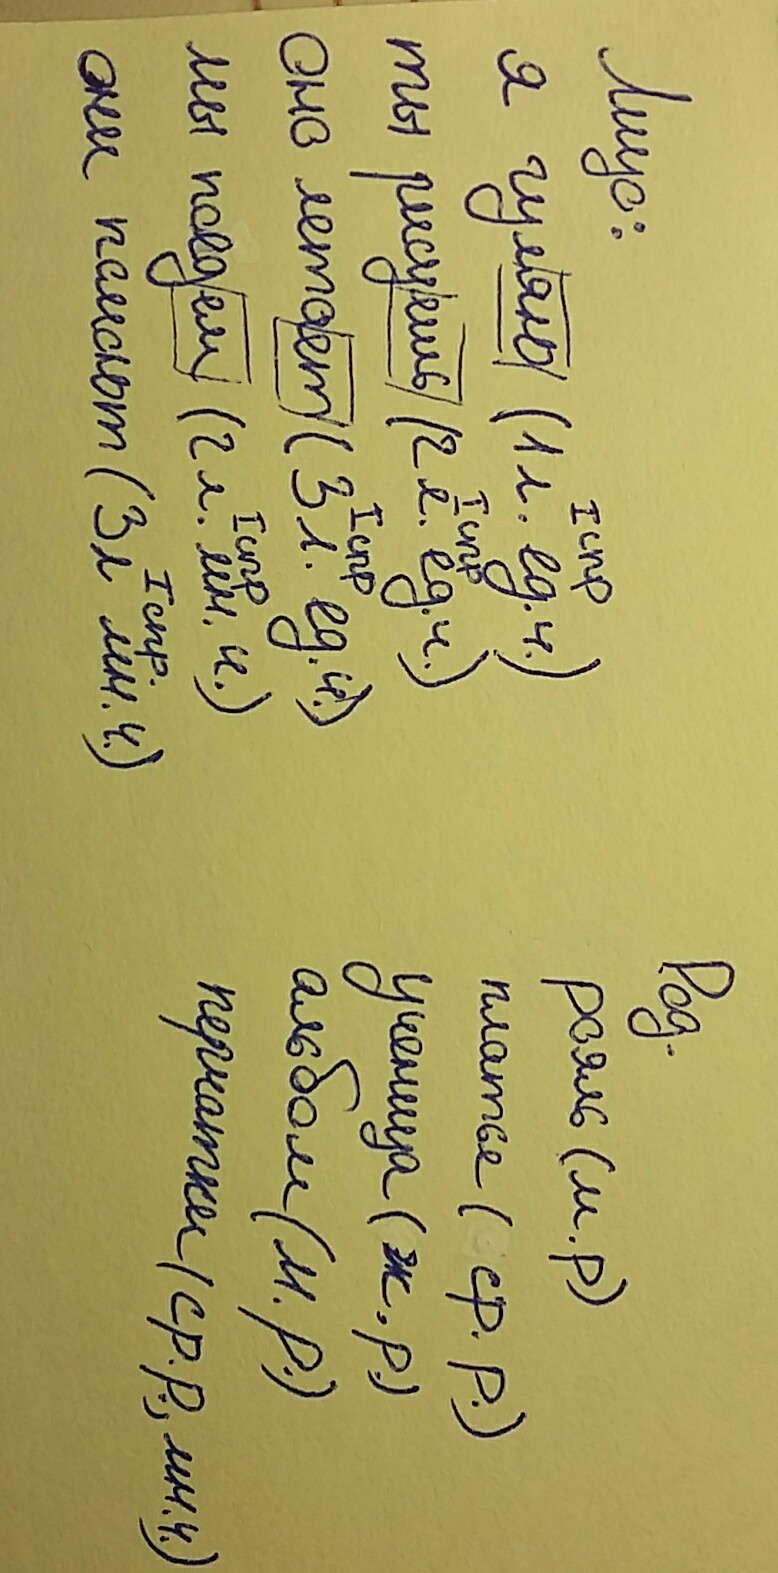 Лицо:
я гуляю (1 л. ед.ч.) I спр
ты рисуешь (2 л. ед.ч.) I спр
оно летает (3 л. ед.ч.) I спр
мы поедем (2 л. мн.ч.) I спр
они помоют (3 л мн.ч.) I спр.
Род.
рояль (м.р)
платье (ср.р.)
ученица (ж.р.)
альбом (м.р.)
перчатки (ср.р., мн.ч.)